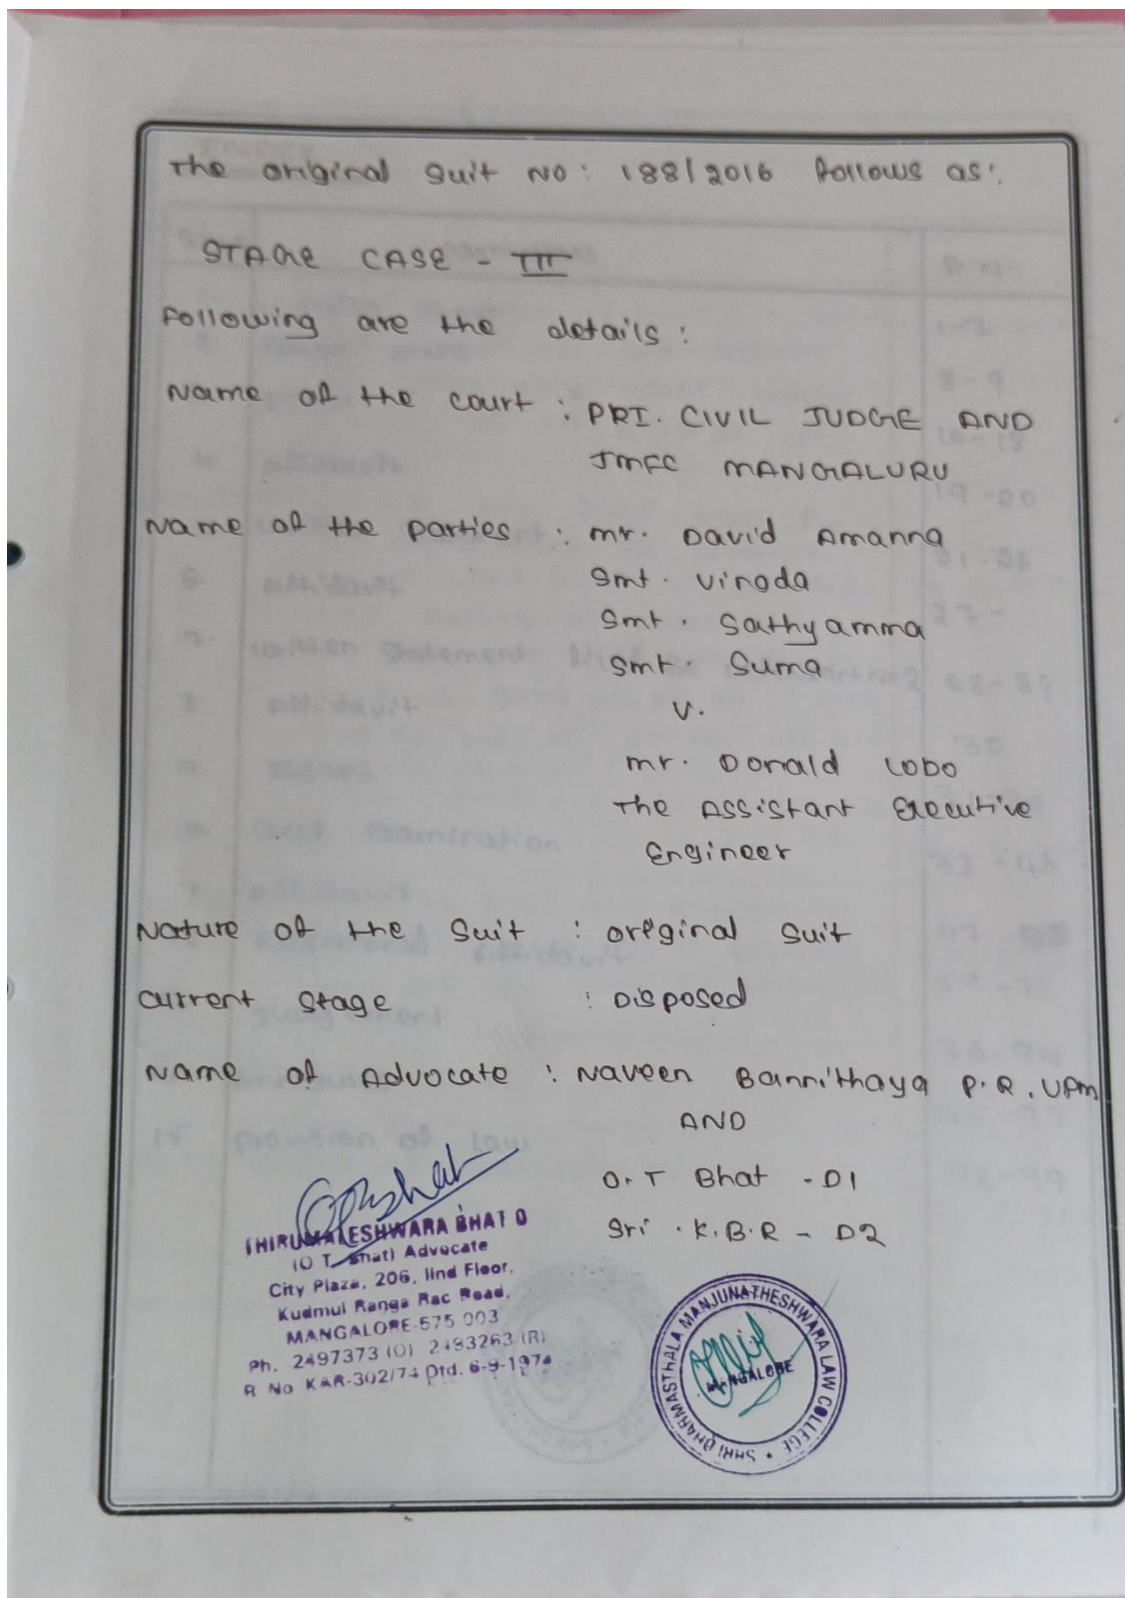 The original suit NO: 188/2016 follows as:
STAGE CASE - III
Following are the details:
Name of the court : PRI. CIVIL JUDGE AND
JMFC MANGALURU
Name of the parties : Mr. David Amanna
Smt. Vinoda
Smt. Sathyamma
Smt. Suma
V.
Mr. Donald Lobo
The Assistant Executive
Engineer
Nature of the suit : original suit
Current stage : Disposed
Name of Advocate : Naveen Bannithaya P.R, UPM
AND
O.T Bhat - D1
Sri . K.B.R - D2
THIRUMALESHWARA BHAT O
(O T Bhat) Advocate
City Plaza, 206, IInd Floor,
Kudmul Ranga Rao Road,
MANGALORE-575 003
Ph. 2497373 (O) 2493263 (R)
R No KAR-302/74 Dtd. 6-9-1974
SHRI DHARMASTHALA MANJUNATHESHWARA LAW COLLEGE
MANGALORE
15 provision of law